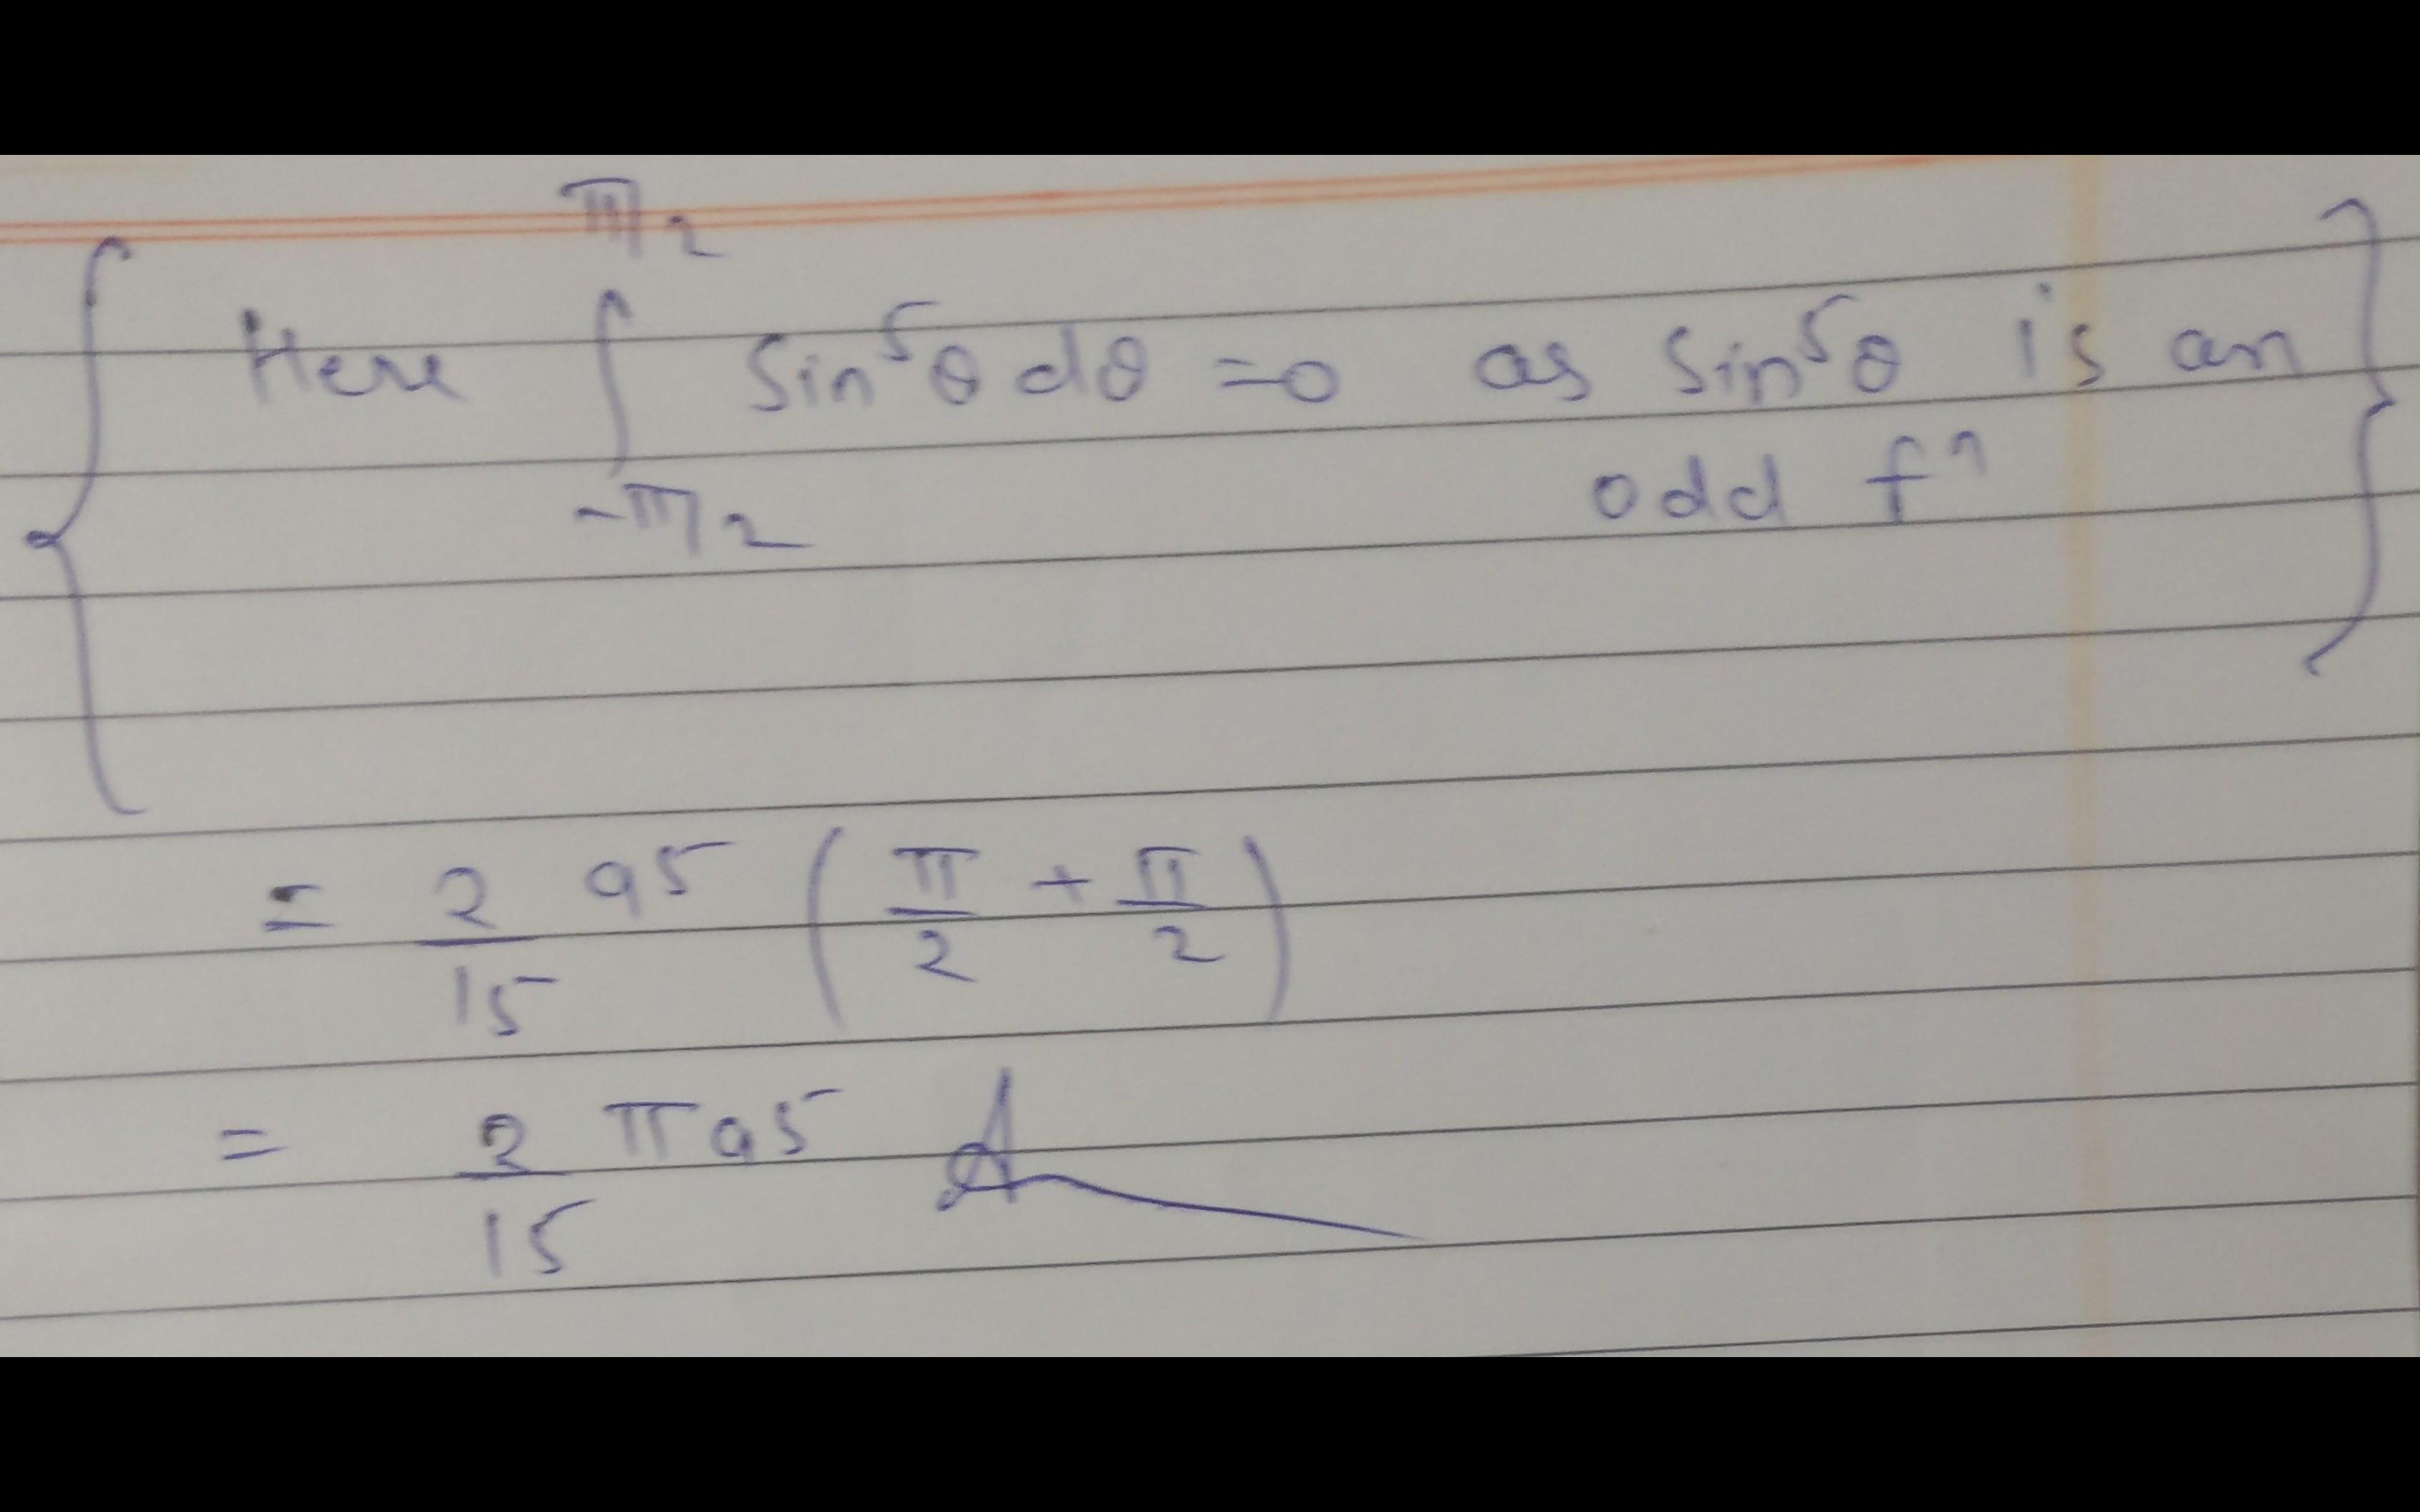 π/2
Here ∫ Sin⁵θ dθ =0 as Sin⁵θ is an
-π/2 odd fⁿ
= 2/15 a5 (π/2 + π/2)
= 2/15 π a5 A